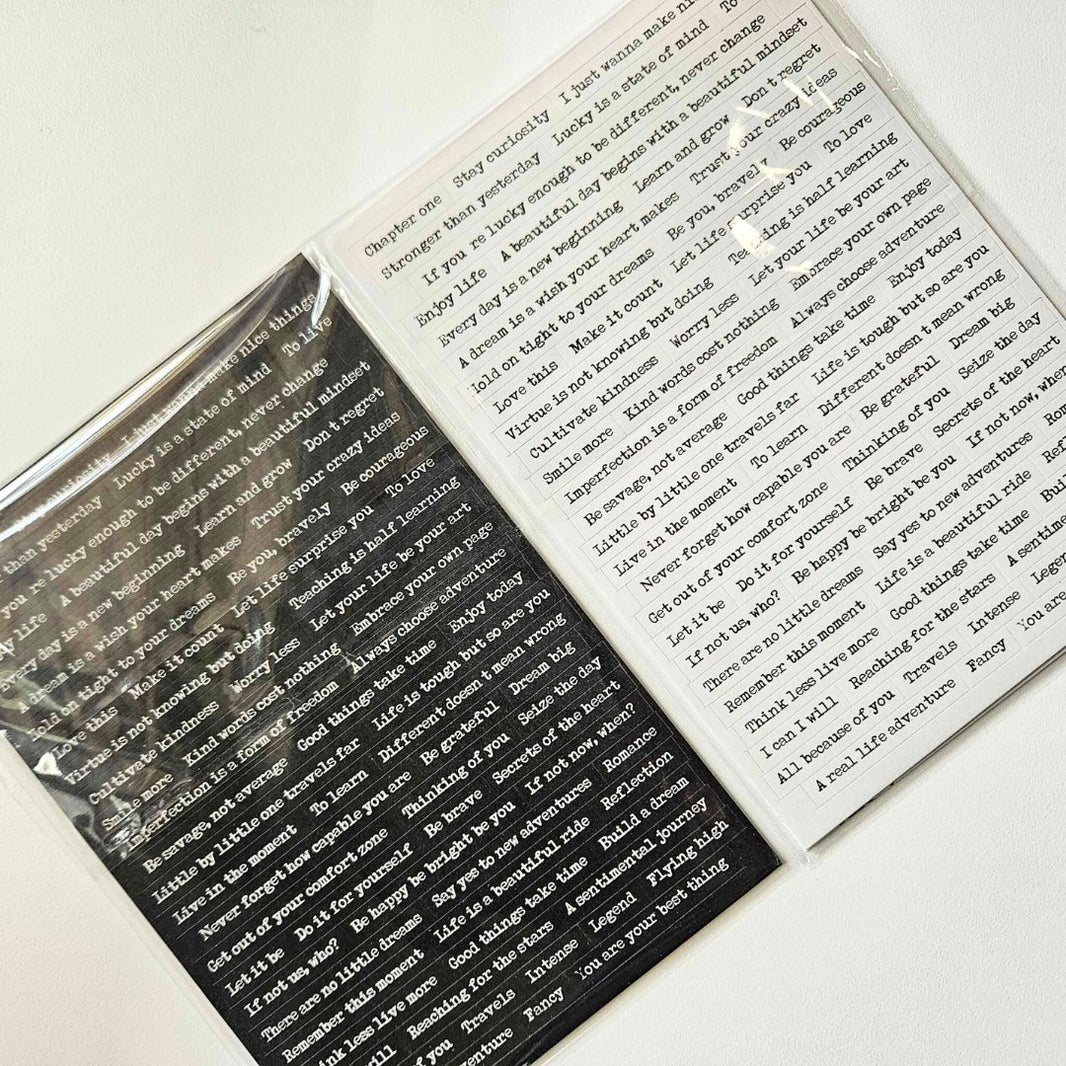 Chapter one Stay curiosity I just wanna make
Stronger than yesterday Lucky is a state of mind To
If you re lucky enough to be different, never change
Enjoy life A beautiful day begins with a beautiful mindset
Every day is a new beginning Learn and grow Don t regret
A dream is a wish your heart makes Trust your crazy ideas
Hold on tight to your dreams Be you, bravely Be courageous
Love this Make it count Let life surprise you To love
Virtue is not knowing but doing Teaching is half learning
Cultivate kindness Worry less Let your life be your art
Smile more Kind words cost nothing Embrace your own page
Imperfection is a form of freedom Always choose adventure
Be savage, not average Good things take time Enjoy today
Little by little one travels far Life is tough but so are you
Live in the moment To learn Different doesn t mean wrong
Never forget how capable you are Be grateful Dream big
Get out of your comfort zone Thinking of you Seize the day
Let it be Do it for yourself Be brave Secrets of the heart
If not us, who? Be happy be bright be you If not now, when
There are no little dreams Say yes to new adventures
Remember this moment Life is a beautiful ride
Think less live more Good things take time
I can I will Reaching for the stars A
All because of you Travels Intense
A real life adventure Fancy You are
curiosity I just wanna make nice things
than yesterday Lucky is a state of mind To live
you re lucky enough to be different, never change
life A beautiful day begins with a beautiful mindset
Every day is a new beginning Learn and grow Don t regret
A dream is a wish your heart makes Trust your crazy ideas
Hold on tight to your dreams Be you, bravely Be courageous
Love this Make it count Let life surprise you To love
Virtue is not knowing but doing Teaching is half learning
Cultivate kindness Worry less Let your life be your art
Smile more Kind words cost nothing Embrace your own page
Imperfection is a form of freedom Always choose adventure
Be savage, not average Good things take time Enjoy today
Little by little one travels far Life is tough but so are you
Live in the moment To learn Different doesn t mean wrong
Never forget how capable you are Be grateful Dream big
Get out of your comfort zone Thinking of you Seize the day
Let it be Do it for yourself Be brave Secrets of the heart
If not us, who? Be happy be bright be you If not now, when?
There are no little dreams Say yes to new adventures Romance
Remember this moment Life is a beautiful ride Reflection
less live more Good things take time Build a dream
Reaching for the stars A sentimental journey
you Travels Intense Legend Flying high
Fancy You are your best thing